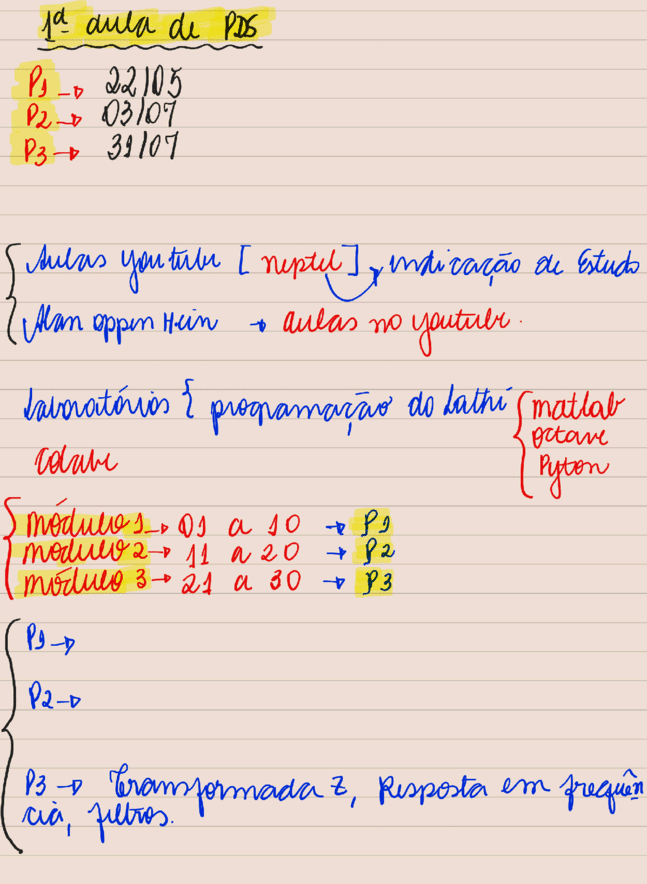 1ª aula de PDS
P1 → 22/05
P2 → 03/07
P3 → 31/07
Aulas youtube [neptel] → indicação de Estudo
Alan oppen Hein → aulas no youtube.
Laboratórios { programação do Lathi { matlab
octave
Pyton
colabe
módulo 1 → 01 a 10 → P1
módulo 2 → 11 a 20 → P2
módulo 3 → 21 a 30 → P3
P1 →
P2 →
P3 → Transformada Z, Resposta em frequên
cia, filtros.